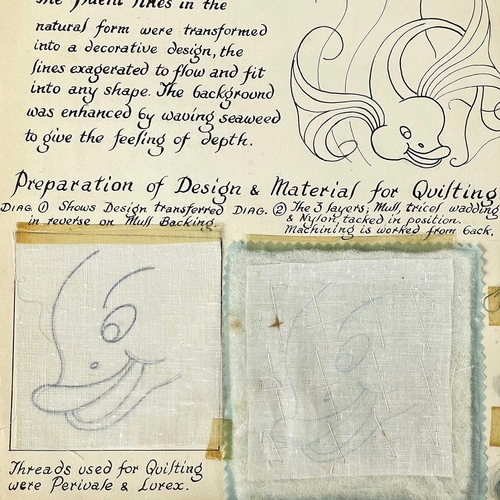 The fluent lines in the
natural form were transformed
into a decorative design, the
lines exagerated to flow and fit
into any shape. The background
was enhanced by waving seaweed
to give the feeling of depth.
Preparation of Design & Material for Quilting
DIAG. ① Shows Design transferred
in reverse on Mull Backing.
DIAG. ② The 3 layers; Mull, tricel wadding
& Nylon, tacked in position.
Machining is worked from back.
Threads used for Quilting
were Perivale & Lurex.